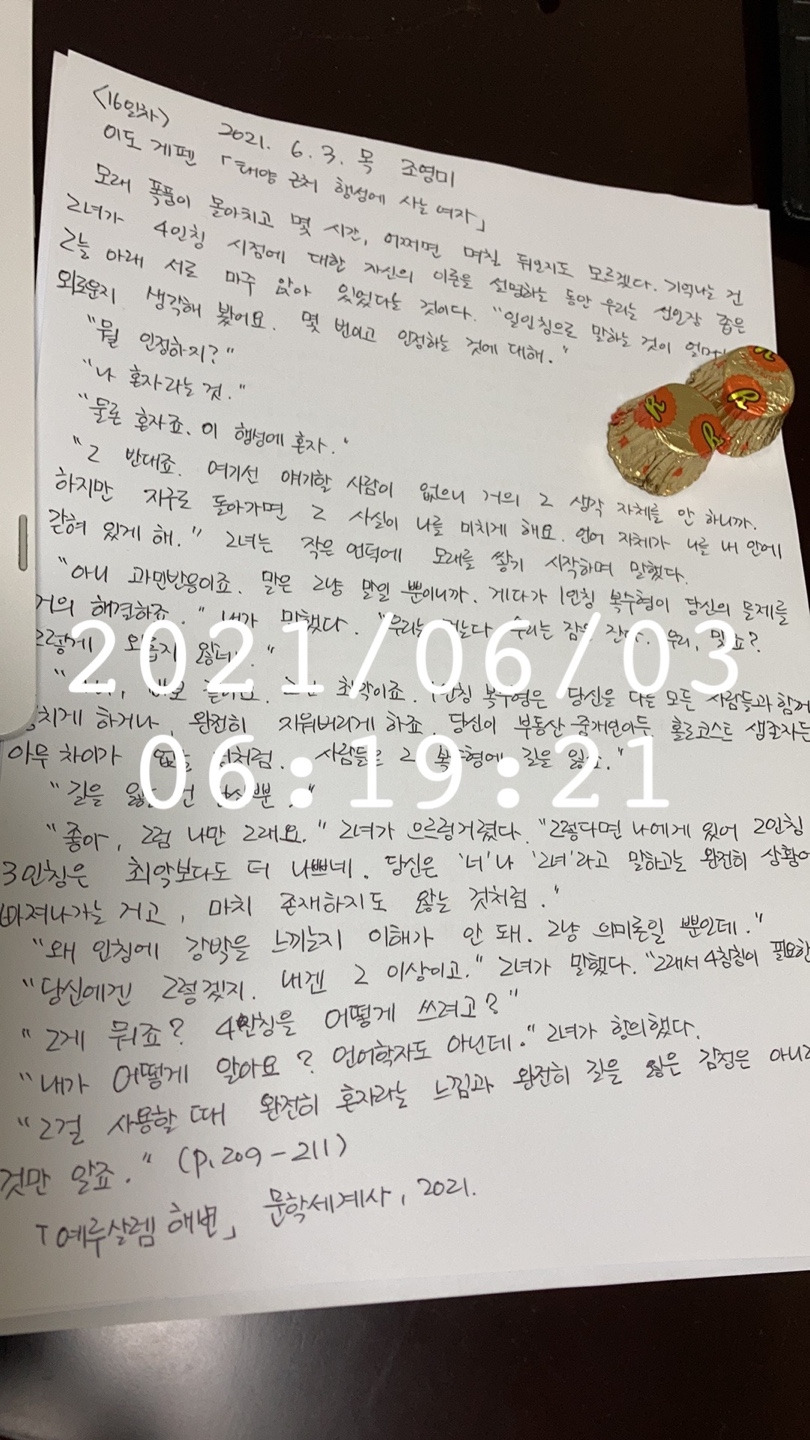 <16일차> 2021. 6. 3. 목 조영미
이도 게펜 「태양 근처 행성에 사는 여자」
모래 폭풍이 몰아치고 몇 시간, 어쩌면 며칠 뒤인지도 모르겠다. 기억나는 건
그녀가 4인칭 시점에 대한 자신의 이론을 설명하는 동안 우리는 선인장 좁은
그늘 아래 서로 마주 앉아 있었다는 것이다. "일인칭으로 말하는 것이 얼마나
외로운지 생각해 봤어요. 몇 번이고 인정하는 것에 대해."
"뭘 인정하지?"
"나 혼자라는 것."
"물론 혼자죠. 이 행성에 혼자."
"그 반대죠. 여기선 얘기할 사람이 없으니 거의 그 생각 자체를 안 하니까.
하지만 지구로 돌아가면 그 사실이 나를 미치게 해요. 언어 자체가 나를 내 안에
갇혀 있게 해." 그녀는 작은 언덕에 모래를 쌓기 시작하며 말했다.
"아니 과민반응이죠. 말은 그냥 말일 뿐이니까. 게다가 1인칭 복수형이 당신의 문제를
거의 해결하죠." 내가 말했다. "우리는 우리는 잠을 잔다. 우리, 맞죠?
그렇게 외롭지 않네."
최악이죠. 1인칭 복수형은 당신을 다른 모든 사람들과 함께
완전히 지워버리게 하죠. 당신이 부동산 중개인이든 홀로코스트 생존자든
아무 차이가 없는 것처럼. 사람들은 그 복수형에 길을 잃죠."
"길을 잃는 건 당신뿐."
"좋아, 그럼 나만 그래요." 그녀가 으르렁거렸다. "그렇다면 나에게 있어 2인칭
3인칭은 최악보다도 더 나쁘네. 당신은 '너'나 '그녀'라고 말하고는 완전히 상황에
빠져나가는 거고, 마치 존재하지도 않는 것처럼."
"왜 인칭에 강박을 느끼는지 이해가 안 돼. 그냥 의미론일 뿐인데."
"당신에겐 그렇겠지. 내겐 그 이상이고." 그녀가 말했다. "그래서 4칭칭이 필요한
"그게 뭐죠? 4인칭을 어떻게 쓰려고?"
"내가 어떻게 알아요? 언어학자도 아닌데." 그녀가 항의했다.
"그걸 사용할 때 완전히 혼자라는 느낌과 완전히 길을 잃은 감정은 아니라
것만 알죠." (p.209-211)
「예루살렘 해변」 문학세계사, 2021.
2021/06/03
06:19:21